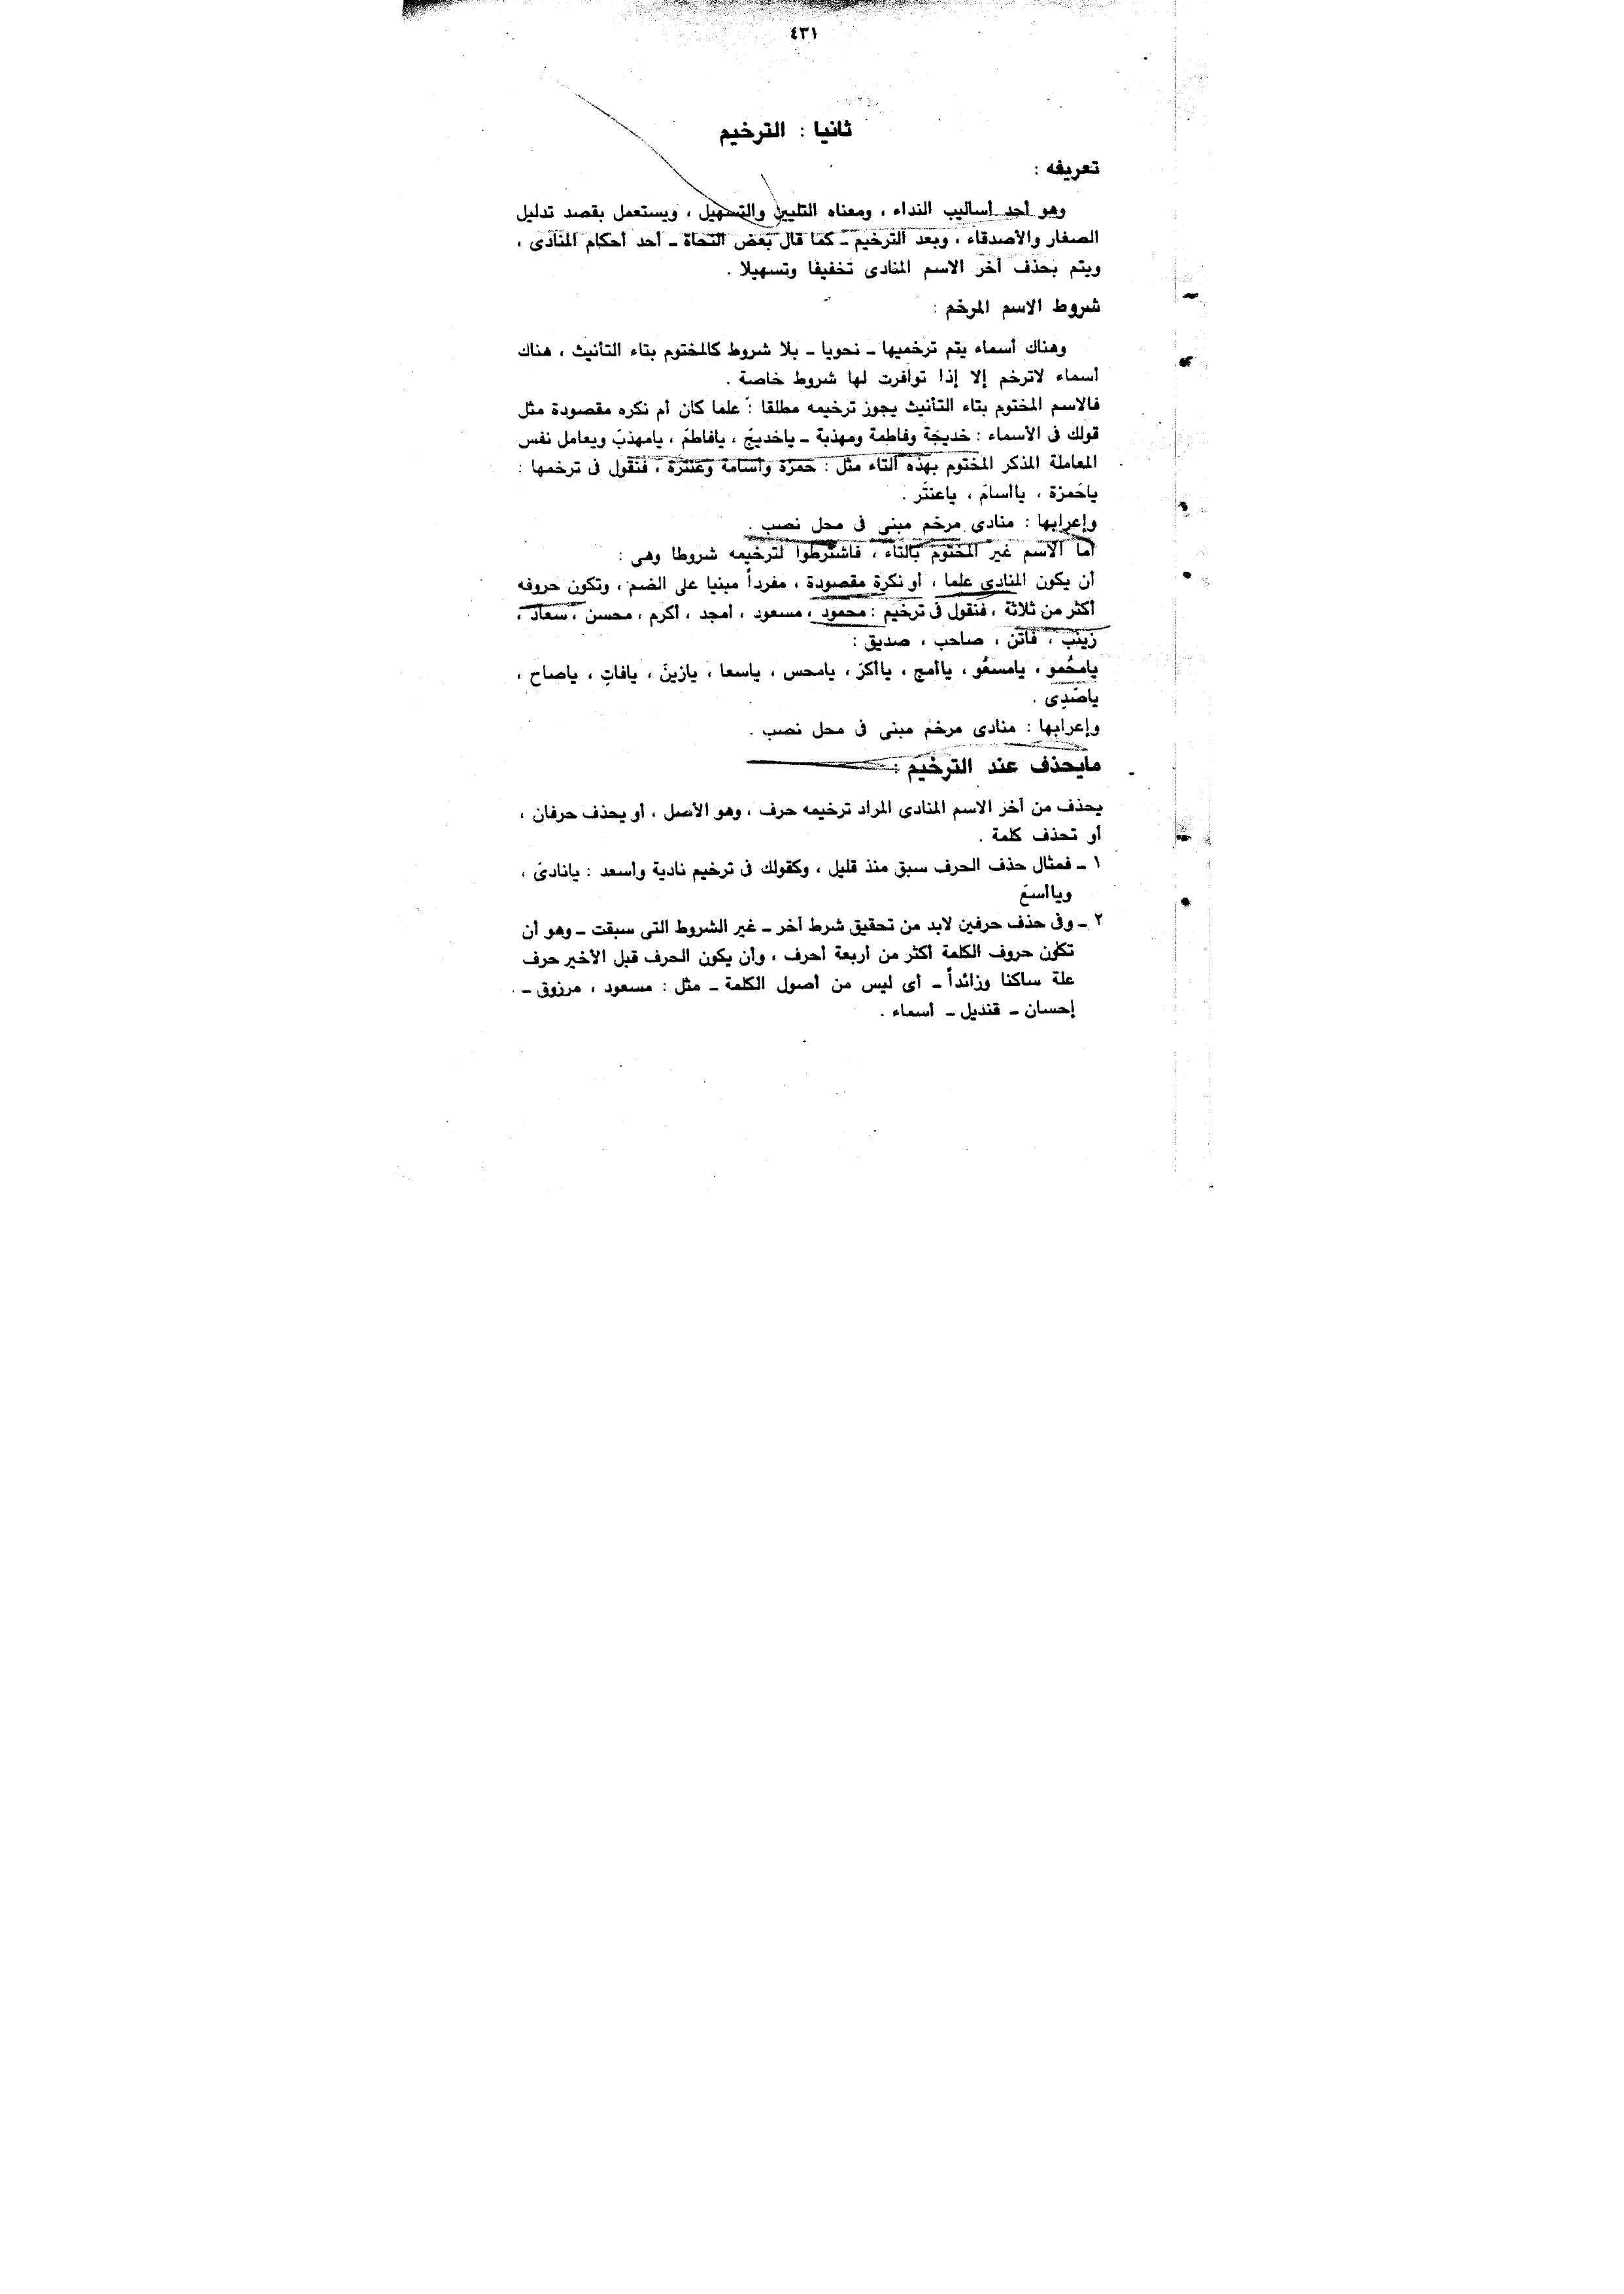 ٤٣١
ثانيا : الترخيم
تعريفه :
وهو أحد أساليب النداء ، ومعناه التليين والتسهيل ، ويستعمل بقصد تدليل
الصغار والأصدقاء ، وبعد الترخيم ــ كما قال بعض النحاة ــ أحد أحكام المنادى ،
ويتم بحذف أخر الاسم المنادى تخفيفا وتسهيلا .
شروط الاسم المرخم :
وهناك أسماء يتم ترخميها ــ نحويا ــ بلا شروط كالمختوم بتاء التأنيث ، هناك
أسماء لاترخم إلا إذا توافرت لها شروط خاصة .
فالاسم المختوم بتاء التأنيث يجوز ترخيمه مطلقا : علما كان أم نكره مقصودة مثل
قولك فى الأسماء : خديجة وفاطمة ومهذبة ــ ياخديجَ ، يافاطمَ ، يامهذبَ ويعامل نفس
المعاملة المذكر المختوم بهذه التاء مثل : حمزة وأسامة وعنترة ، فنقول فى ترخمها :
ياحَمزة ، ياأسامَ ، ياعنتَر .
وإعرابها : منادى مرخم مبنى فى محل نصب .
أما الاسم غير المختوم بالتاء ، فاشترطوا لترخيمه شروطا وهى :
أن يكون المنادى علما ، أو نكرة مقصودة ، مفرداً مبنيا على الضم ، وتكون حروفه
أكثر من ثلاثة ، فنقول فى ترخيم : محمود ، مسعود ، أمجد ، أكرم ، محسن ، سعاد ،
زينب ، فاتن ، صاحب ، صديق :
يامحُمو ، يامسعُو ، ياأمج ، ياأكرَ ، يامحس ، ياسعا ، يازينَ ، يافاتِ ، ياصاح ،
ياصَدِى .
وإعرابها : منادى مرخم مبنى فى محل نصب .
مايحذف عند الترخيم :
يحذف من أخر الاسم المنادى المراد ترخيمه حرف ، وهو الأصل ، أو يحذف حرفان ،
أو تحذف كلمة .
١ ــ فمثال حذف الحرف سبق منذ قليل ، وكقولك فى ترخيم نادية وأسعد : يانادىَ ،
وياأسعَ
٢ ــ وفى حذف حرفين لابد من تحقيق شرط أخر ــ غير الشروط التى سبقت ــ وهو أن
تكون حروف الكلمة أكثر من أربعة أحرف ، وأن يكون الحرف قبل الأخير حرف
علة ساكنا وزائداً ــ أى ليس من أصول الكلمة ــ مثل : مسعود ، مرزوق ــ
إحسان ــ قنديل ــ أسماء .